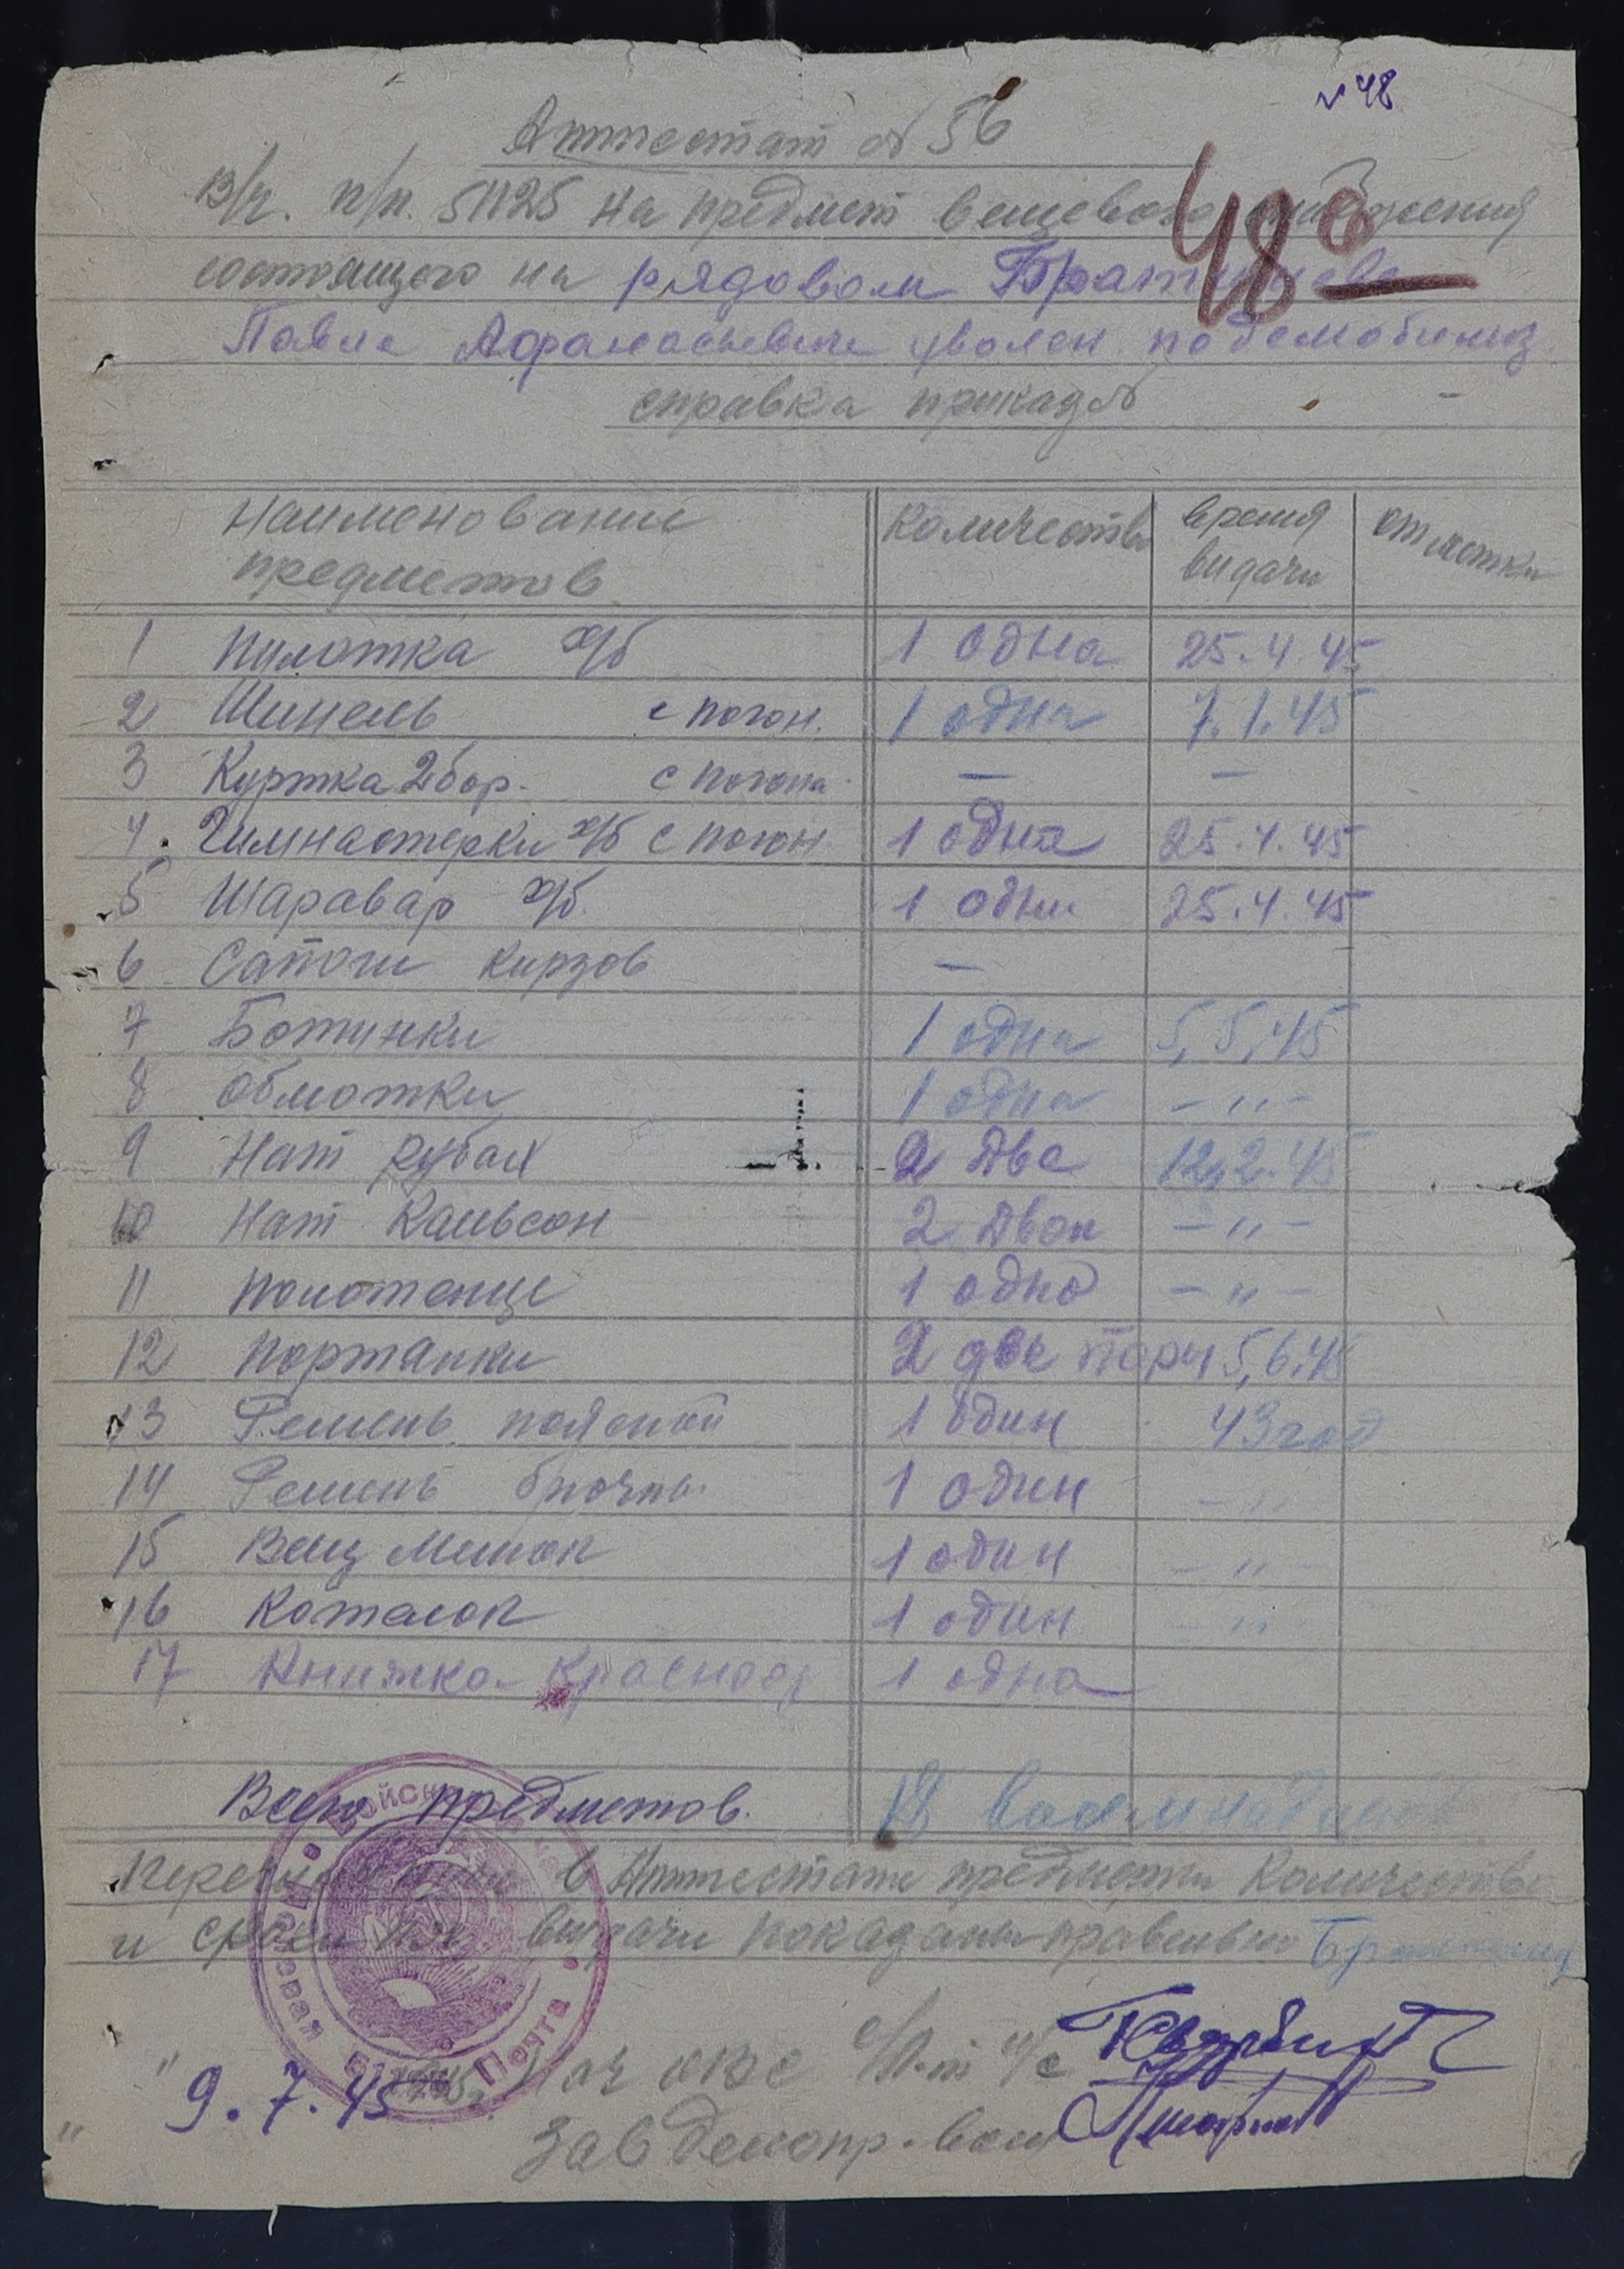 № 48
Аттестат № 56
В/ч. п/п. 51125 на предмет вещевого
48
состоящего на рядовом
Павле Афанасьевиче уволен. по демобилиз
справка приказ №
Наименование предметов
Количество
время видачи
отметки
1 Пилотка х/б 1 одна 25.4.45
2 Шинель с погон. 1 одна 7.1.45
3 Куртка 2 бор. с погона — —
4. Гимнастерки х/б с погон 1 одна 25.4.45
5 Шаравар х/б. 1 одни 25.4.45
6 Сапоги кирзов —
7 Ботинки 1 одна 5,5,45
8 Обмотки 1 одна —"—
9 Нат рубах 2 две 12,2.45
10 Нат Кальсон 2 двои —"—
11 Полотенце 1 одно —"—
12 Портянки 2 две пары 5,6.45
13 Ремень поясной 1 один 43 год
14 Ремень брючны 1 один —"—
15 Вещ мешок 1 один —"—
16 Котелок 1 один —"—
17 Книжка Красноар 1 одна
Всего предметов. 18 восемнадцать
в Аттестате предметы Количество
и сроки их видачи показаны правельно
Полевая Почта
9.7.45 Нач ОВС
Зав делопр-вом